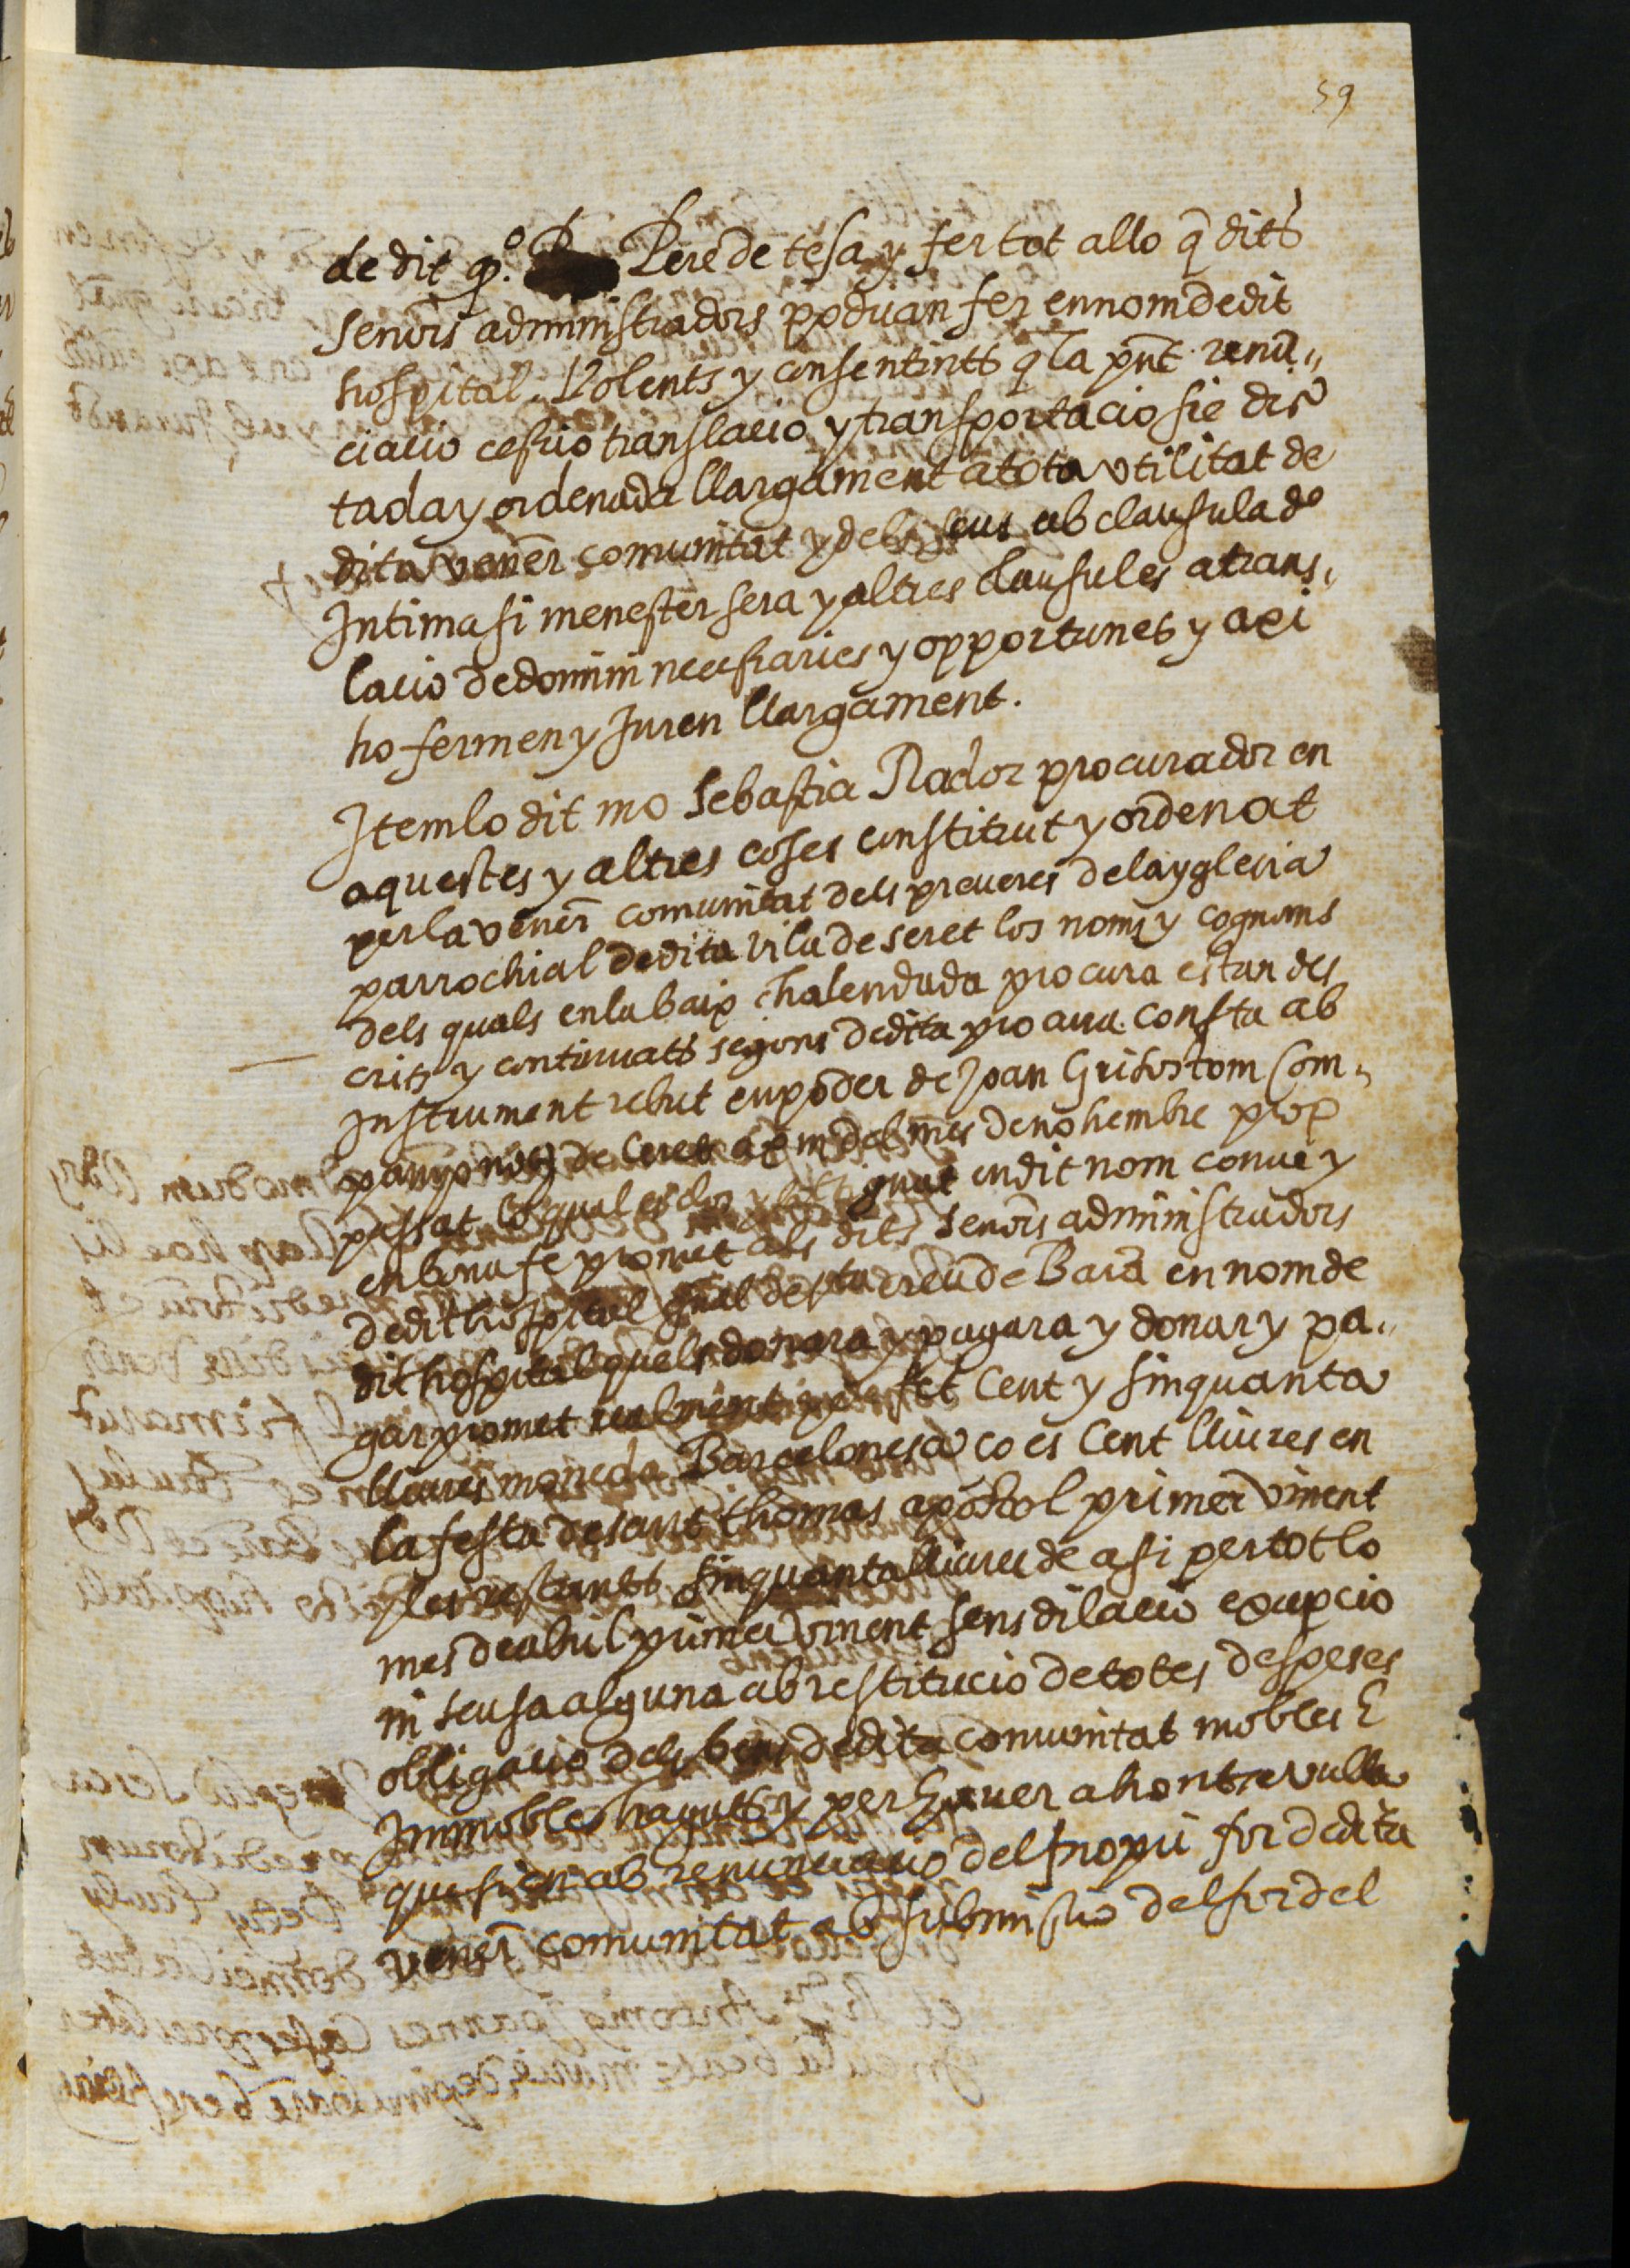 59
de dit qº. Pere de tesa y fer tot allo q̄ dits
senors administradors poduan fer en nom de dit
hospital. Volents y consentints q̄ la pñt renu„
ciatio cessio translacio y transportacio sie dis
tada y ordenada llargament a tota utilitat de
dita veneȓ comunitat y dels seus ab clausula de
Intima si menester sera y altres clausules a trans„
lacio de domini necessaries y opportunes y axi
ho fermen y Juren llargament.
Item lo dit mº Sebastia Nador procurador en
aquestes y altres coses constituit y ordenat
per la veneȓ comunitat dels preueres de la yglesia
parrochial de dita vila de seret los noms y cognoms
dels quals en la baix chalendada procura estan des
crits y continuats segons de dita procura consta ab
Instrument rebut en poder de Joan Grisostom Com„
pamp noty de Ceret a del mes de nohembre prop
passat lo qual es clos y en dit nom conue y
en bona fe promet als dits senors administradors
de dit hospital gñal de sta creu de Barã en nom de
dit hospital quels donara y pagara y donar y pa„
gar promet realment y de fet Cent y sinquanta
lliures moneda Barcelonesa co es Cent lliures en
la festa de sant thomas apostol primer vinent
y les restants sinquanta lliures de asi per tot lo
mes de abril primer vinent sens dilacio excepcio
ni scusa alguna ab restitucio de totes despeses
obligacio dels bens de dita comunitat mobles E
Immobles haguts y per hauer ahont se vulla
que sien ab renunciacio del propri for de dita
veneȓ comunitat ab submissio del for del